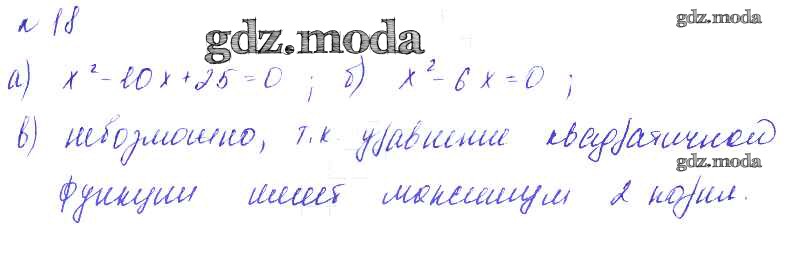 № 18
gdz.moda
gdz.moda
а) x² - 10x + 25 = 0 ; б) x² - 6x = 0 ;
в) невозможно, т.к. уравнение квадратичной
gdz.moda
функции имеет максимум 2 корня.